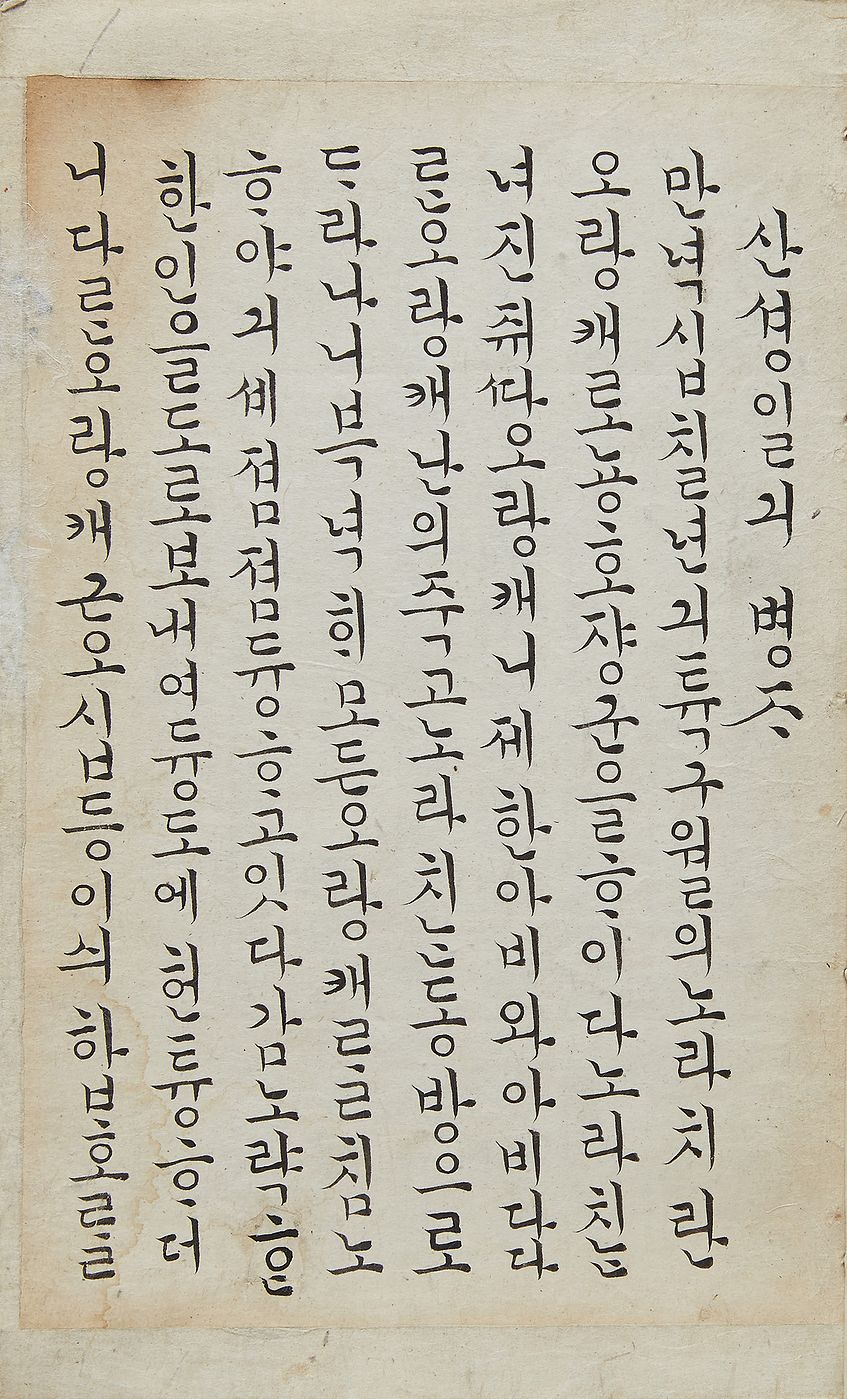 산셩일긔 병ᄌᆞ
만녁십칠년긔튝구월의노라치란
오랑캐로뇽호쟝군을ᄒᆞ이다노라치ᄂᆞᆫ
녀진쥐ᄯᅡ오랑캐니제한아비와아비다다
ᄅᆞᆫ오랑캐난의죽고노라치ᄂᆞᆫ동방으로
ᄃᆞ라나니븍녁희모든오랑캐ᄅᆞᆯ침노
ᄒᆞ야긔셰졈졈듕ᄒᆞ고잇다감노략ᄒᆞᆫ
한인을도로보내여듕도에헌튱ᄒᆞ더
니다ᄅᆞᆫ오랑캐근오십등이싀하보호ᄅᆞᆯ